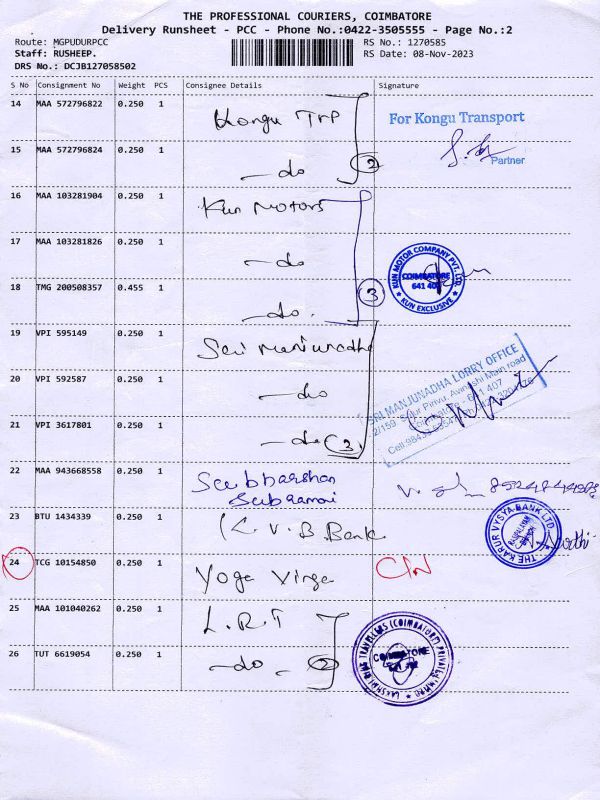 THE PROFESSIONAL COURIERS, COIMBATORE
Delivery Runsheet - PCC - Phone No.:0422-3505555 - Page No.:2
Route: MGPUDURPCC
RS No.: 1270585
Staff: RUSHEEP.
RS Date: 08-Nov-2023
DRS No.: DCJB127058502
S No Consignment No Weight PCS Consignee Details Signature
14 MAA 572796822 0.250 1 Kongu TrP
For Kongu Transport
Partner
15 MAA 572796824 0.250 1 —do 2
16 MAA 103281904 0.250 1 Kun Motors
17 MAA 103281826 0.250 1 —do
KUN MOTOR COMPANY PVT. LTD.
COIMBATORE
641 407
KUN EXCLUSIVE
18 TMG 200508357 0.455 1 —do. 3
19 VPI 595149 0.250 1 Sri Manjunadha
20 VPI 592587 0.250 1 —do
SRI MANJUNADHA LORRY OFFICE
2/159 Pirivu, Avinashi Main road
Coimbatore - 641 407
21 VPI 3617801 0.250 1 —do (3)
22 MAA 943668558 0.250 1 Subbarshan
23 BTU 1434339 0.250 1 K.V.B Bank
THE KARUR VYSYA BANK LTD.
24 TCG 10154850 0.250 1 Yoga Virga C/N
25 MAA 101040262 0.250 1 L.R.T
26 TUT 6619054 0.250 1 —do — 2
TRAVELLERS (COIMBATORE) PRIVATE
COIMBATORE